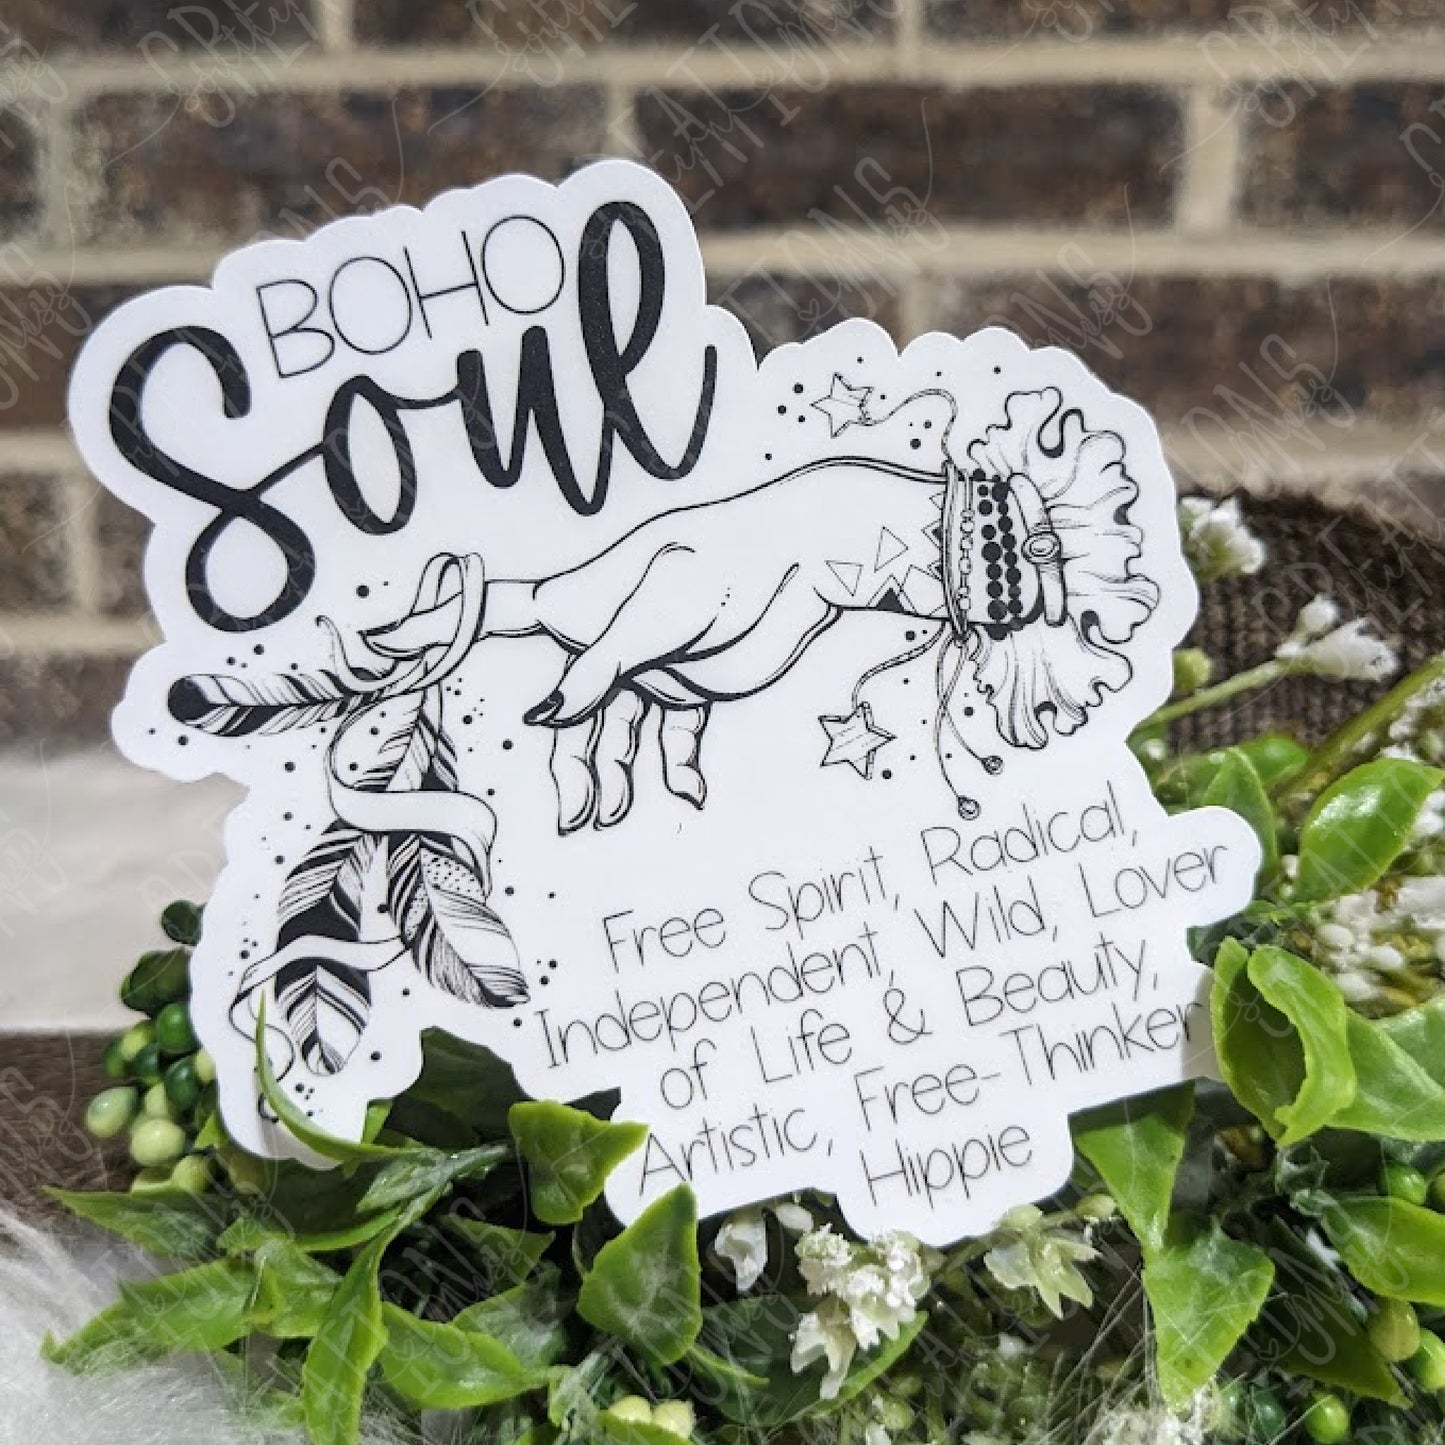 BOHO
Soul
Free Spirit, Radical,
Independent, Wild, Lover
of Life & Beauty,
Artistic, Free-Thinker
Hippie
CREATIONS